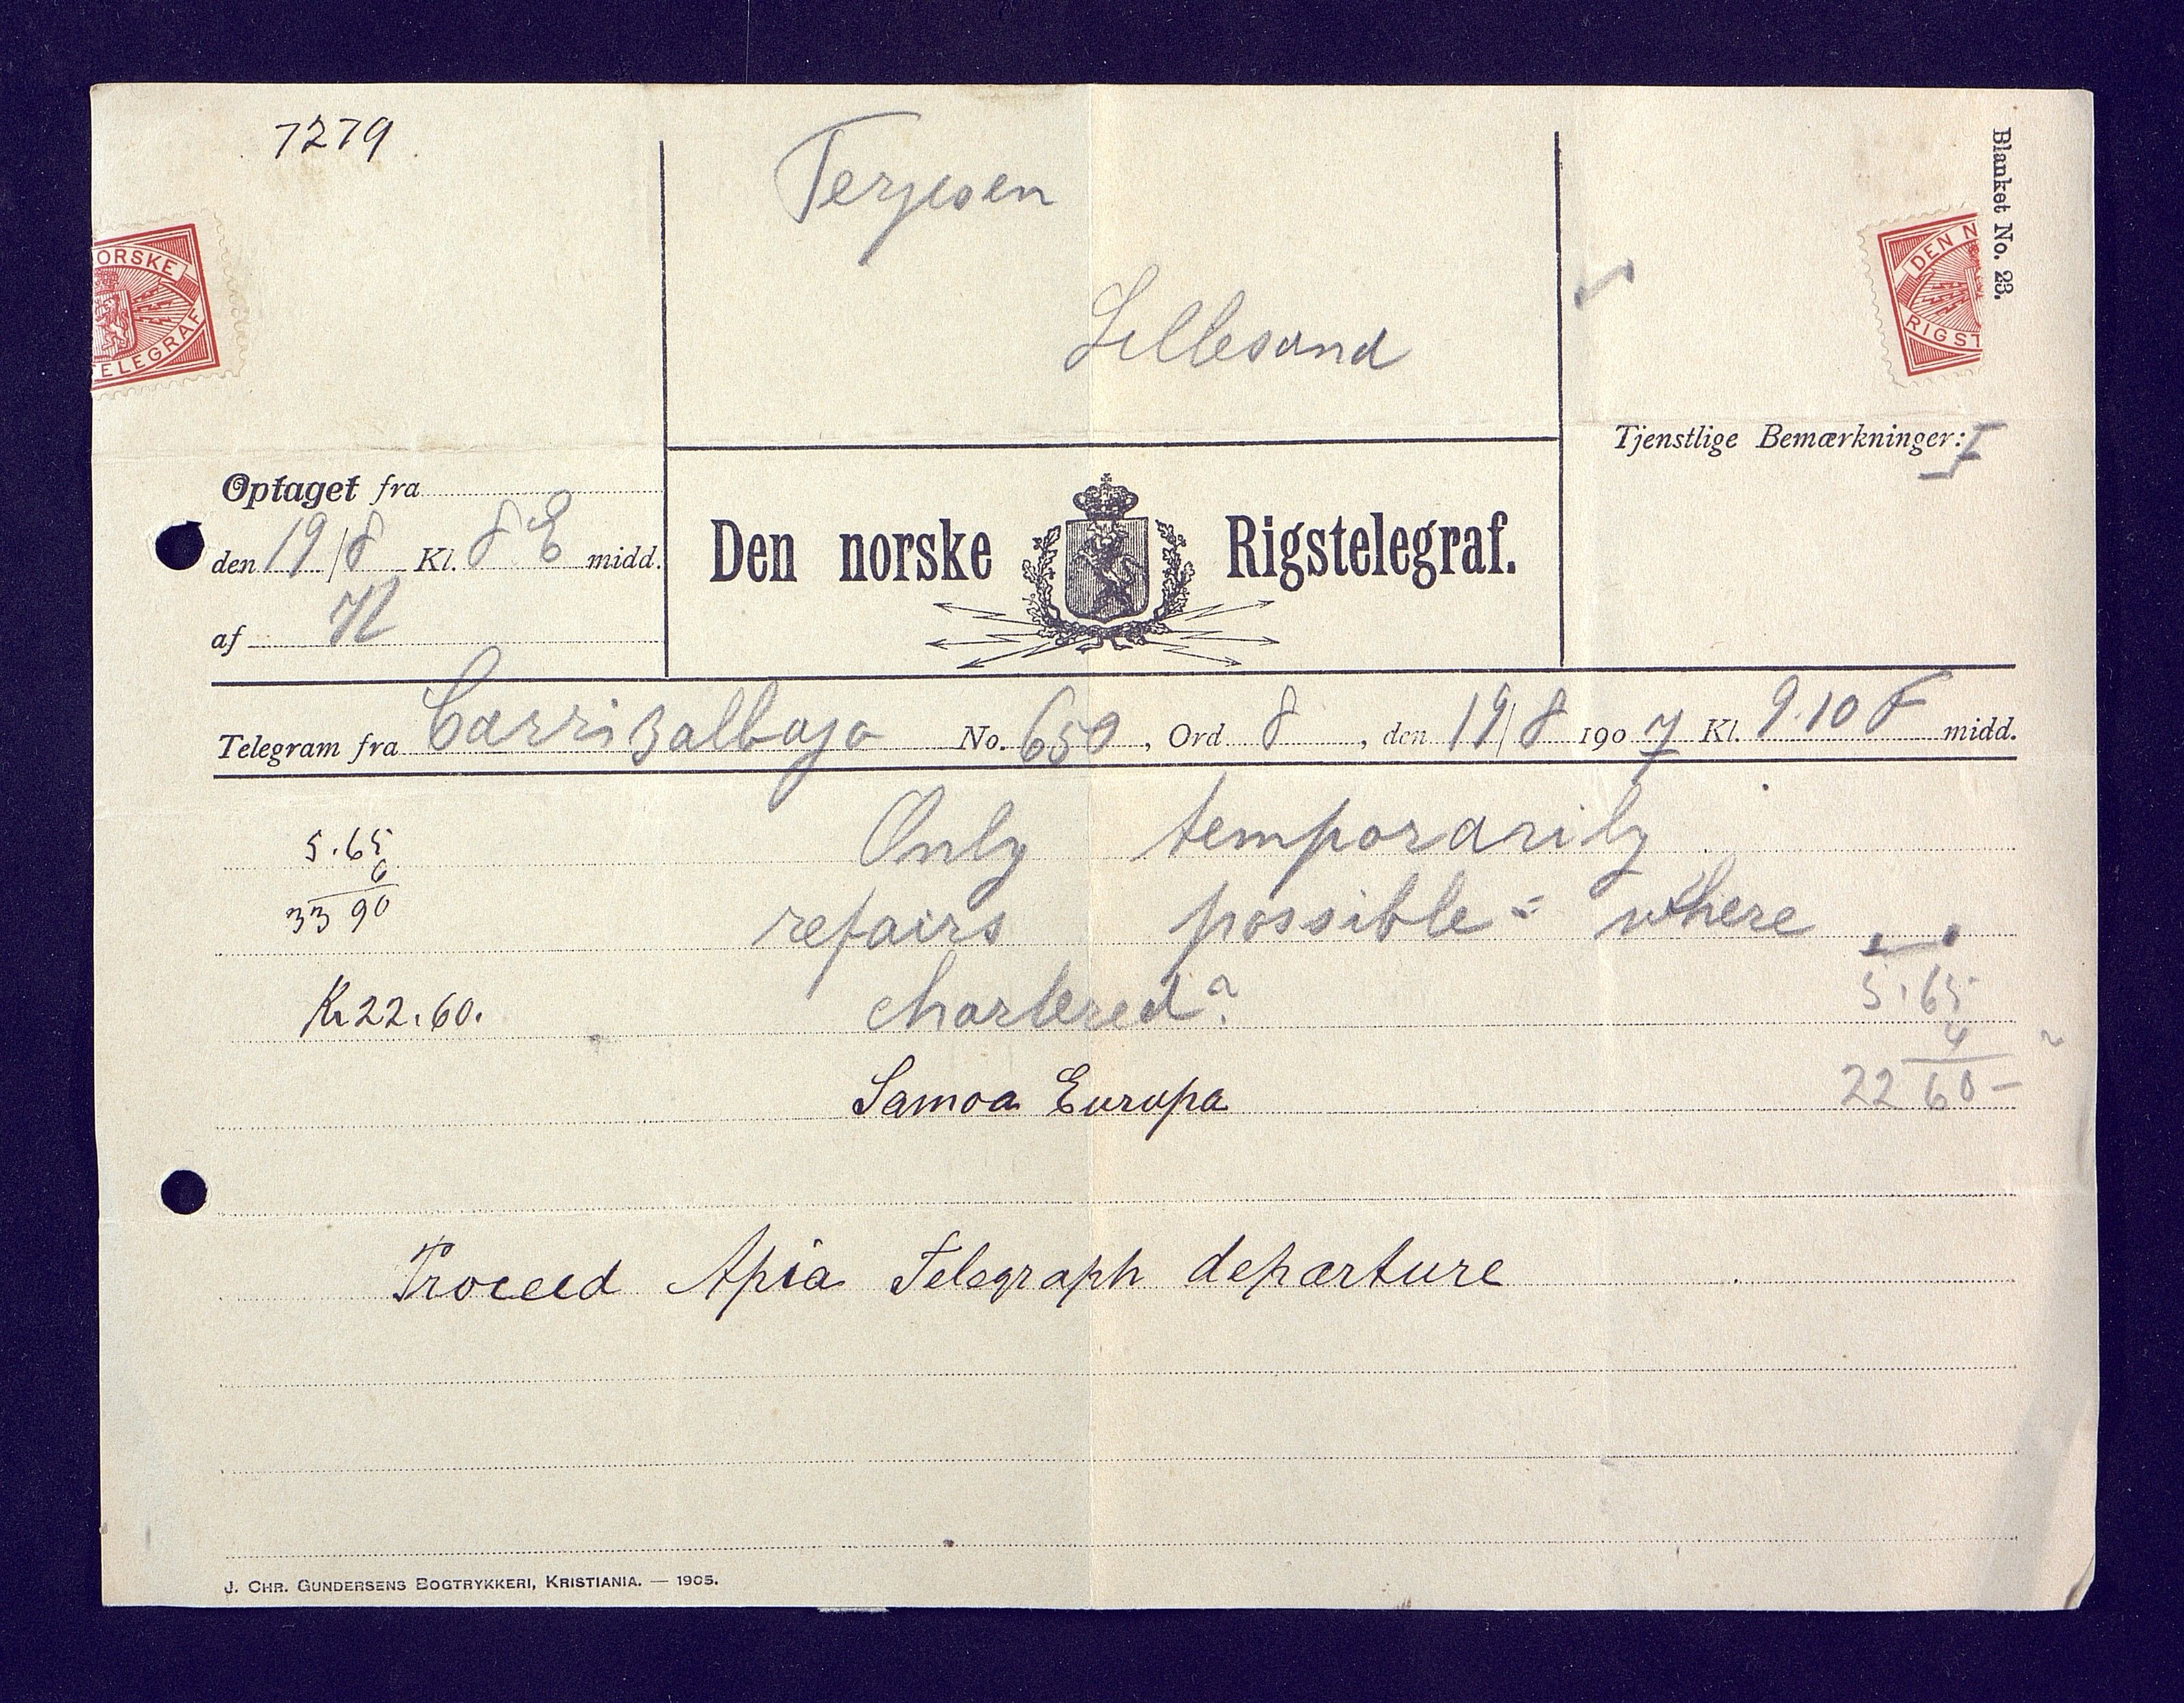 7279
Terjesen
Lillesand
Blanket No. 23.
ORSKE
TELEGRAF
DEN N
RIGST
Tjenstlige Bemærkninger:
Optaget fra
den 19/8 Kl. 8 E midd.
af
Den norske Rigstelegraf.
Telegram fra Carrizalbajo No. 650, Ord 8, den 19/8 1907 Kl. 9.10 F midd.
5.65
6
33 90
Only temporarily
repairs possible = where
chartered?
Kr 22.60.
5.65
4
22 60 –
Samoa Europa
Proceed Apia Telegraph departure
J. CHR. GUNDERSENS BOGTRYKKERI, KRISTIANIA. — 1905.